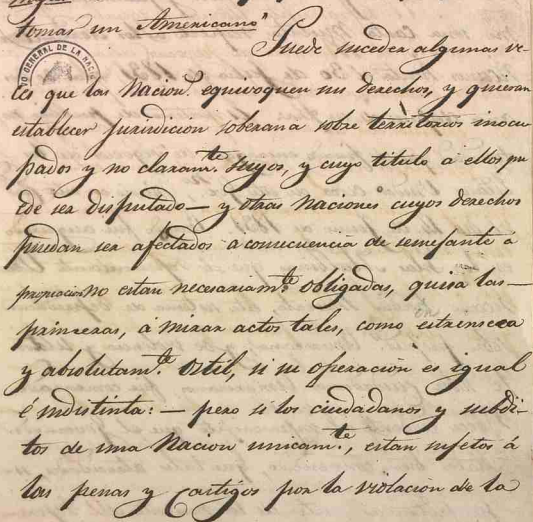 tomas un Americano"
Puede suceder algunas ve-
GENERAL DE LA NACIO
ces que las Nacion.s equivoquen sus derechos, y quieran
establecer jurisdicion soberana sobre territorios inocu
pados y no claram.te suyos, y cuyo titulo a ellos pu
ede ser disputado — y otras Naciones cuyos derechos
puedan ser afectados a consecuencia de semejante a
propiacion no estan necesariam.te obligadas, quisa las —
primeras, a mirar actos tales, como estrenseca
y absolutam.te ostil, si su operacion es igual
é indistinta: — pero si los ciudadanos y subdi-
tos de una Nacion unicam.te, estan sujetos á
las penas y Castigos por la violacion de la